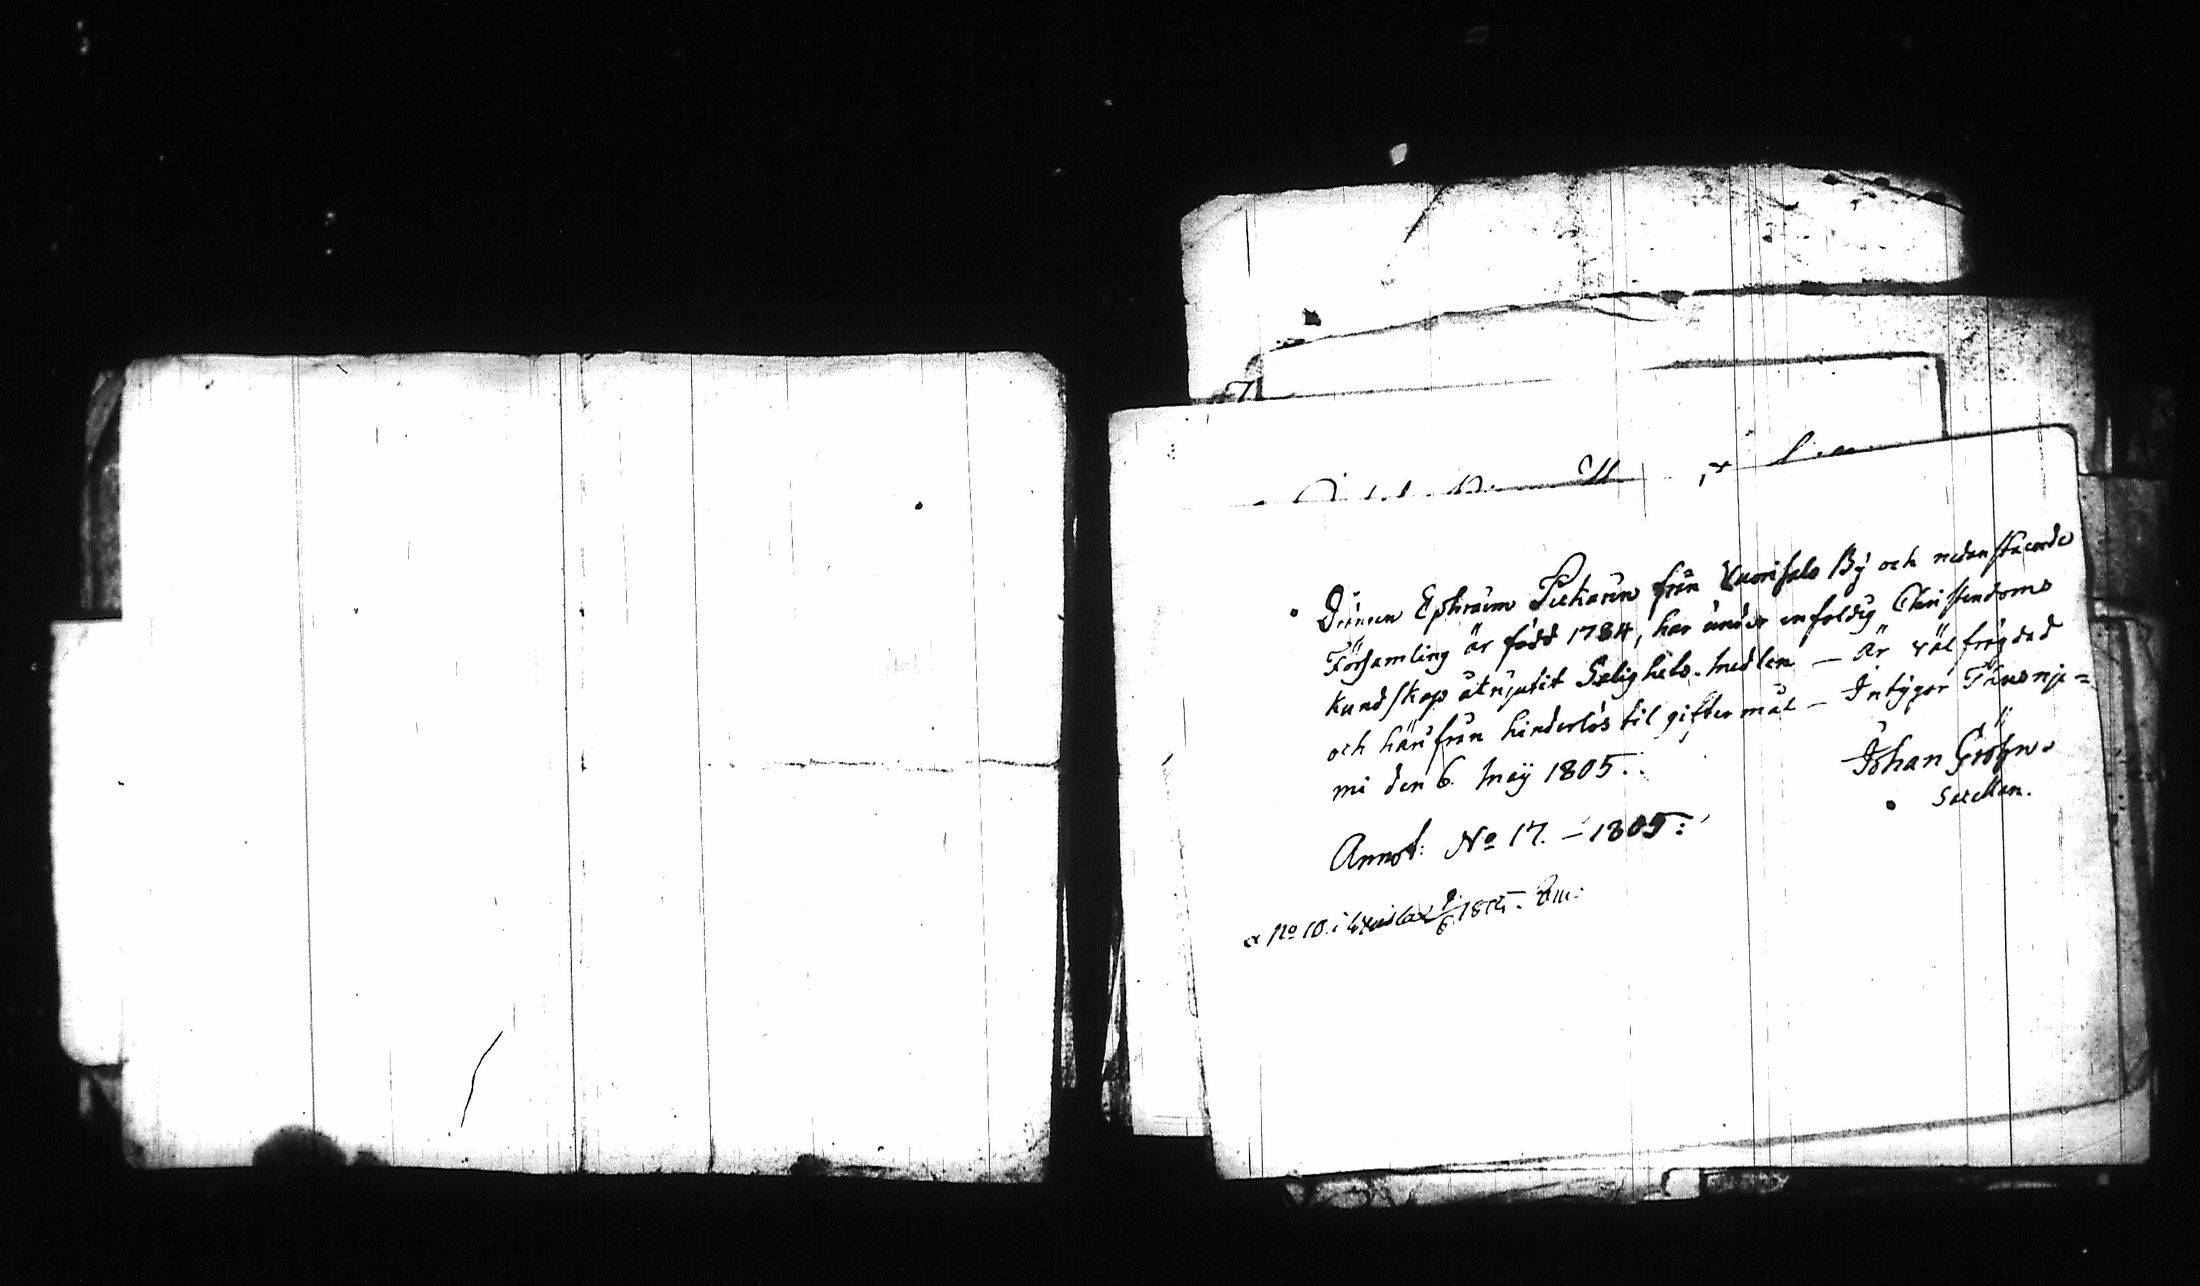 Drängen Ephraim Piekarin från Vuorisalo By och nedanstående
Församling är född 1784, har under enfoldig Christendoms
kundskap åtnjutit Salighets-medlen — Är väl frägdad
och härifrån hinderlös til giftermål — Intygar Thuovnje=
mi den 6. Maÿ 1805.
Johan Gröhn
Sacellan.
Annot: No 17. — 1805:
a No 10. i 1805.